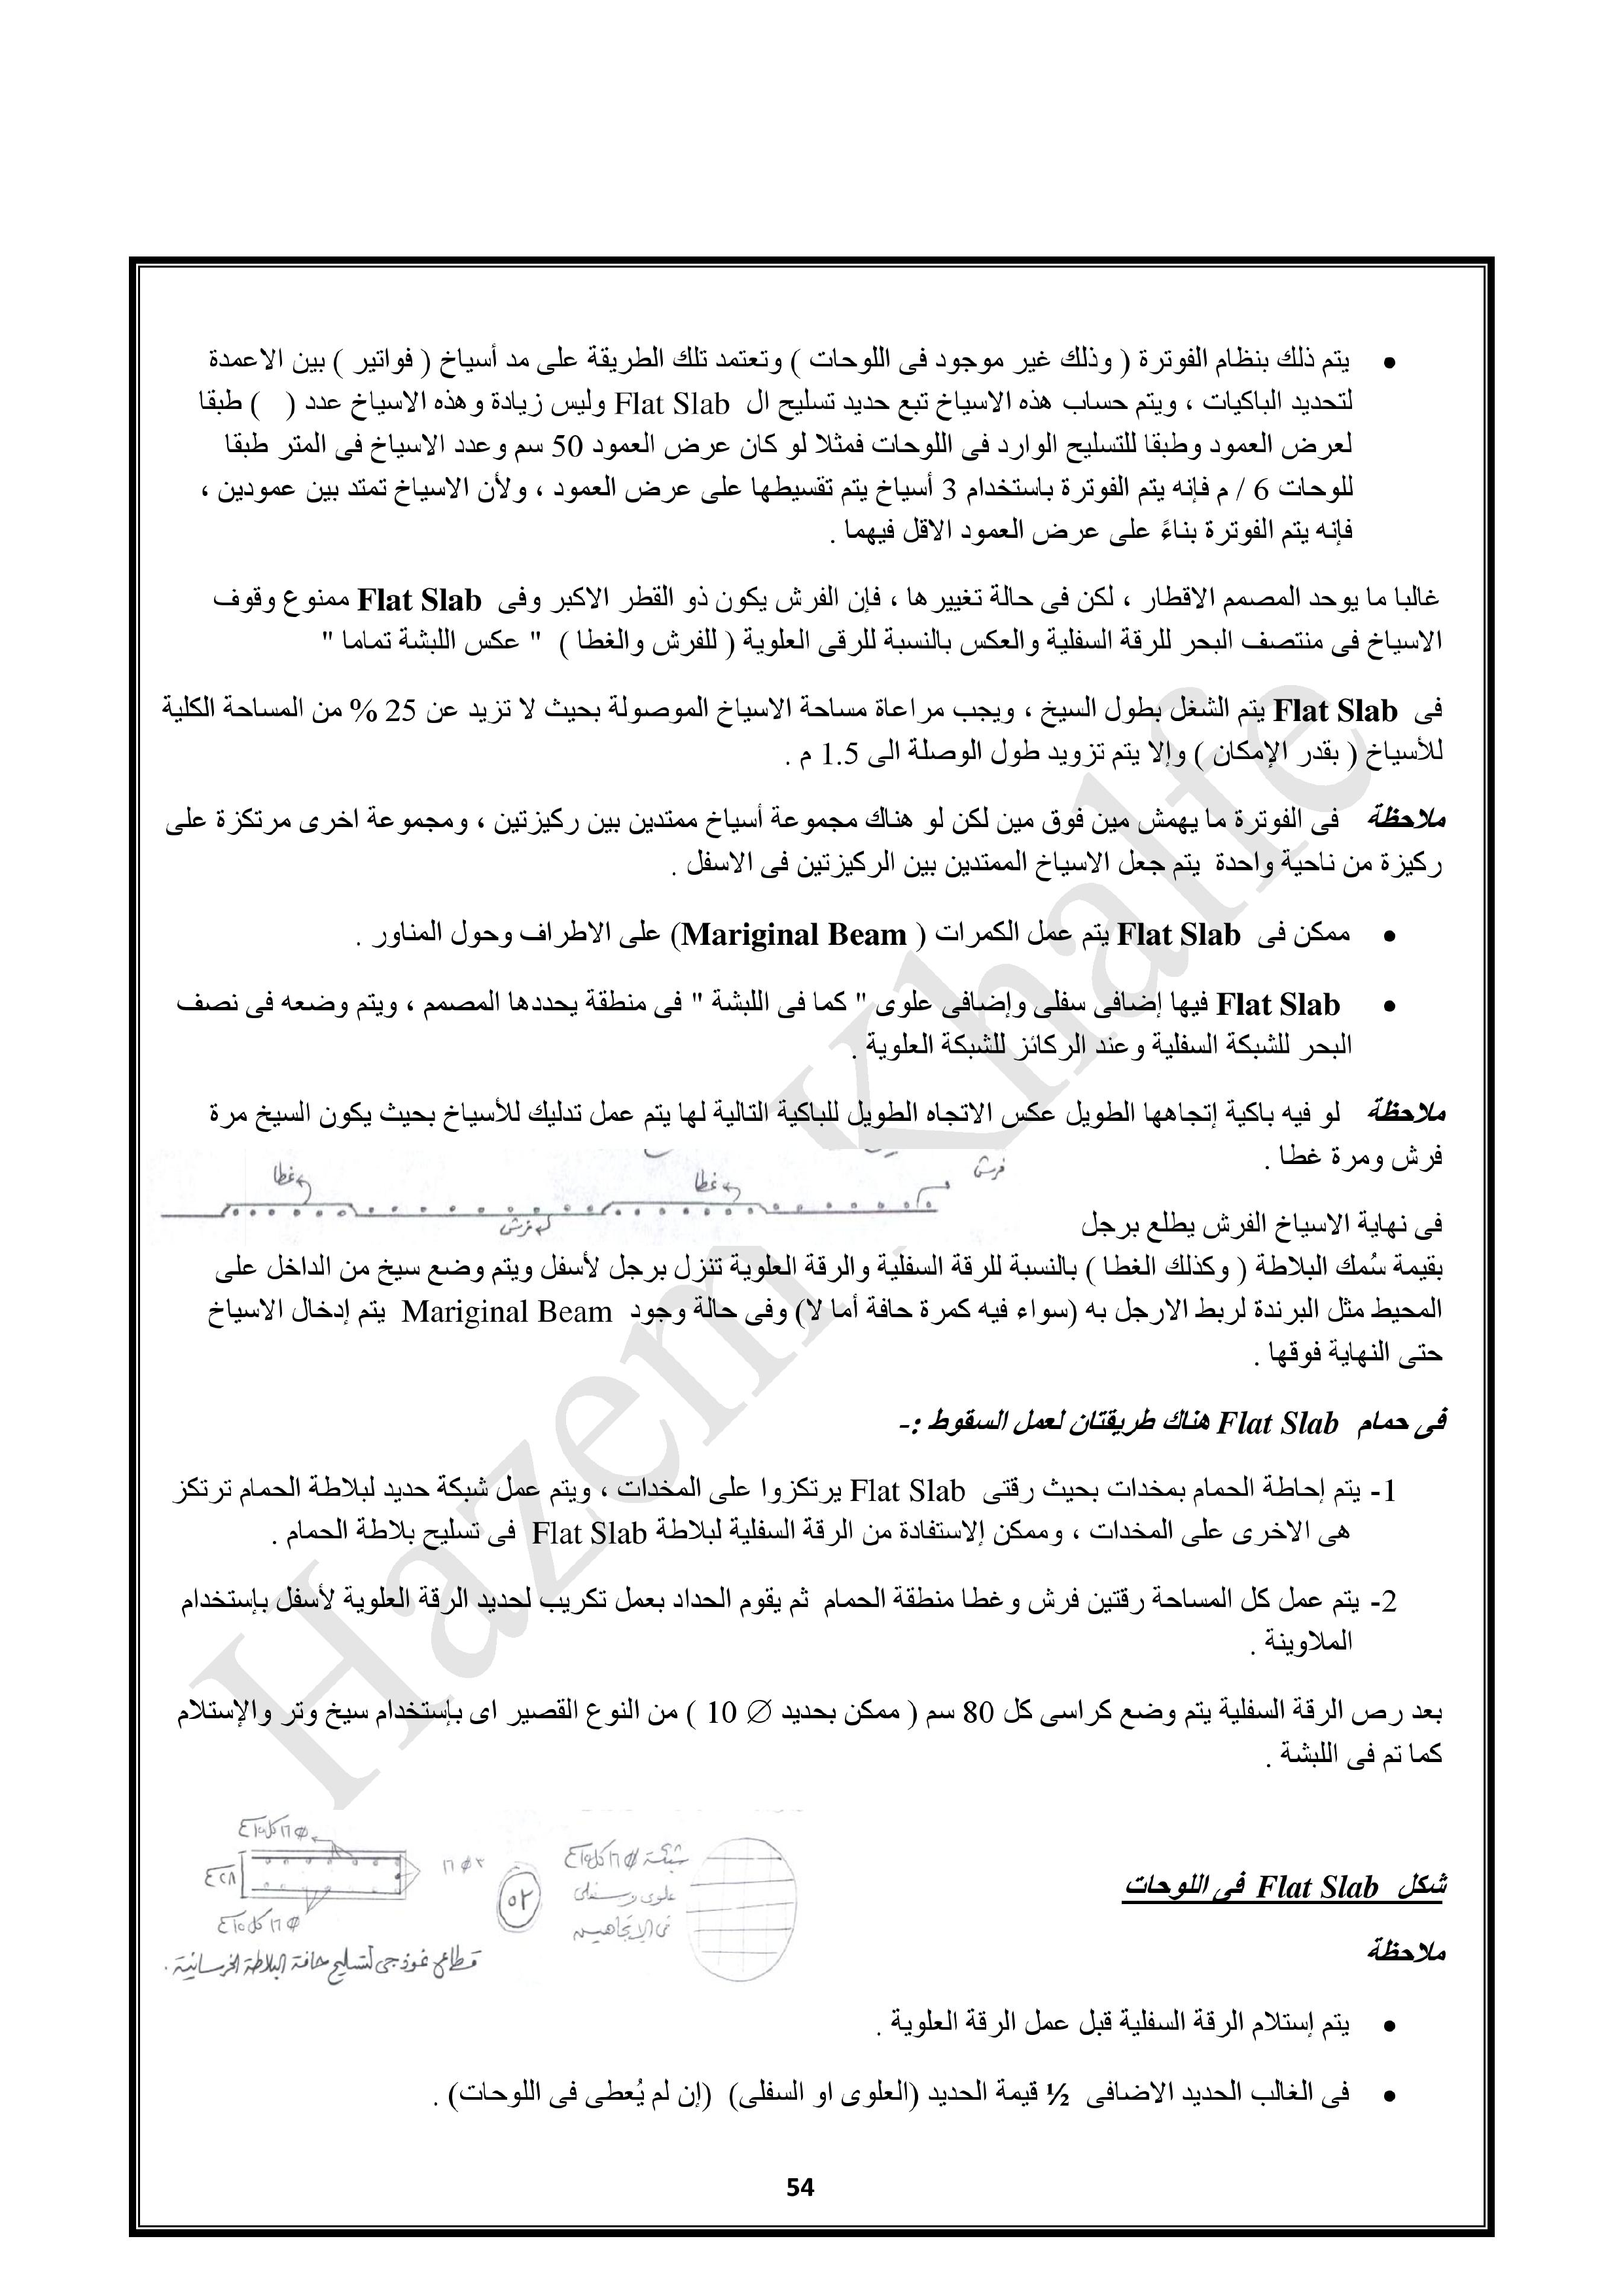 • يتم ذلك بنظام الفوترة ( وذلك غير موجود فى اللوحات ) وتعتمد تلك الطريقة على مد أسياخ ( فواتير ) بين الاعمدة
لتحديد الباكيات ، ويتم حساب هذه الاسياخ تبع حديد تسليح ال Flat Slab وليس زيادة وهذه الاسياخ عدد ( ) طبقا
لعرض العمود وطبقا للتسليح الوارد فى اللوحات فمثلا لو كان عرض العمود 50 سم وعدد الاسياخ فى المتر طبقا
للوحات 6 / م فإنه يتم الفوترة باستخدام 3 أسياخ يتم تقسيطها على عرض العمود ، ولأن الاسياخ تمتد بين عمودين ،
فإنه يتم الفوترة بناءً على عرض العمود الاقل فيهما .
غالبا ما يوحد المصمم الاقطار ، لكن فى حالة تغييرها ، فإن الفرش يكون ذو القطر الاكبر وفى Flat Slab ممنوع وقوف
الاسياخ فى منتصف البحر للرقة السفلية والعكس بالنسبة للرقى العلوية ( للفرش والغطا ) " عكس اللبشة تماما "
فى Flat Slab يتم الشغل بطول السيخ ، ويجب مراعاة مساحة الاسياخ الموصولة بحيث لا تزيد عن 25 % من المساحة الكلية
للأسياخ ( بقدر الإمكان ) وإلا يتم تزويد طول الوصلة الى 1.5 م .
ملاحظة فى الفوترة ما يهمش مين فوق مين لكن لو هناك مجموعة أسياخ ممتدين بين ركيزتين ، ومجموعة اخرى مرتكزة على
ركيزة من ناحية واحدة يتم جعل الاسياخ الممتدين بين الركيزتين فى الاسفل .
• ممكن فى Flat Slab يتم عمل الكمرات ( Mariginal Beam) على الاطراف وحول المناور .
• Flat Slab فيها إضافى سفلى وإضافى علوى " كما فى اللبشة " فى منطقة يحددها المصمم ، ويتم وضعه فى نصف
البحر للشبكة السفلية وعند الركائز للشبكة العلوية .
ملاحظة لو فيه باكية إتجاهها الطويل عكس الاتجاه الطويل للباكية التالية لها يتم عمل تدليك للأسياخ بحيث يكون السيخ مرة
فرش ومرة غطا .
فرش
غطا
غطا
فرش
فى نهاية الاسياخ الفرش يطلع برجل
بقيمة سُمك البلاطة ( وكذلك الغطا ) بالنسبة للرقة السفلية والرقة العلوية تنزل برجل لأسفل ويتم وضع سيخ من الداخل على
المحيط مثل البرندة لربط الارجل به (سواء فيه كمرة حافة أما لا) وفى حالة وجود Mariginal Beam يتم إدخال الاسياخ
حتى النهاية فوقها .
فى حمام Flat Slab هناك طريقتان لعمل السقوط :-
1- يتم إحاطة الحمام بمخدات بحيث رقتى Flat Slab يرتكزوا على المخدات ، ويتم عمل شبكة حديد لبلاطة الحمام ترتكز
هى الاخرى على المخدات ، وممكن إلاستفادة من الرقة السفلية لبلاطة Flat Slab فى تسليح بلاطة الحمام .
2- يتم عمل كل المساحة رقتين فرش وغطا منطقة الحمام ثم يقوم الحداد بعمل تكريب لحديد الرقة العلوية لأسفل بإستخدام
الملاوينة .
بعد رص الرقة السفلية يتم وضع كراسى كل 80 سم ( ممكن بحديد ∅ 10 ) من النوع القصير اى بإستخدام سيخ وتر والإستلام
كما تم فى اللبشة .
شبكة
علوى وسفلى
فى الاتجاهين
٥٢
قطاع نموذجى لتسليح حافة البلاطة الخرسانية .
شكل Flat Slab فى اللوحات
ملاحظة
• يتم إستلام الرقة السفلية قبل عمل الرقة العلوية .
• فى الغالب الحديد الاضافى ½ قيمة الحديد (العلوى او السفلى) (إن لم يُعطى فى اللوحات) .
54
Hazem Khalfe